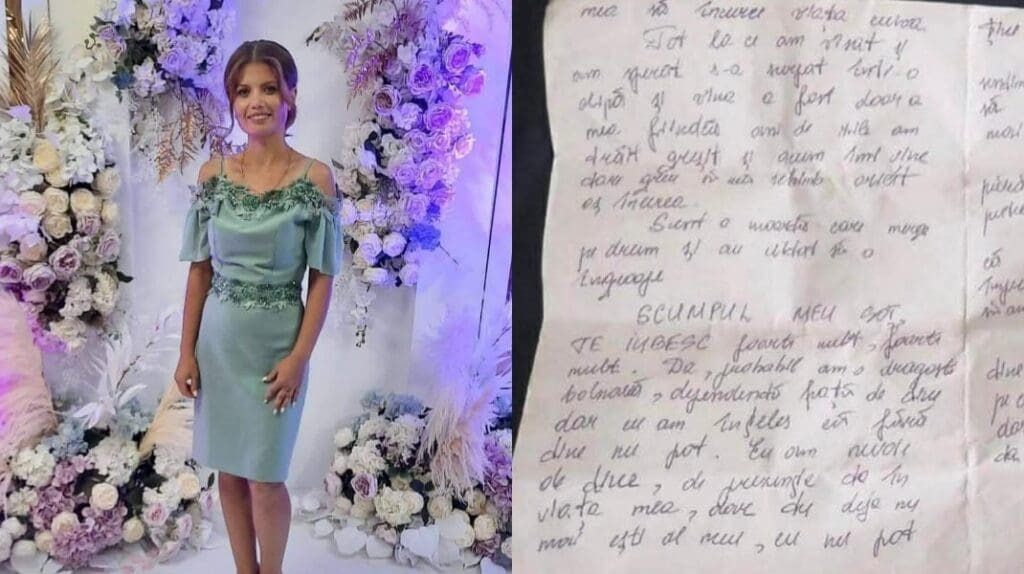 mea să încurce viața cuiva
Tot la ce am visat și
am sperat s-a surpat într-o
clipă și vina a fost doar a
mea fiindcă ani de zile am
trăit greșit și acum îmi vine
dare greu să mă schimb
aș încerca.
Sunt o moartă care merge
pe drum și au uitat să o
îngroape
SCUMPUL MEU SOȚ,
TE IUBESC foarte mult, foarte
mult. Da, probabil am o dragoste
bolnavă, dependentă față de tine
dar eu am înțeles că fără
tine nu pot. Eu am nevoie
de tine, de prezența ta în
viața mea, dare tu deja nu
mai ești al meu, eu nu pot
ține
să
mai
că
tine
pe
dar